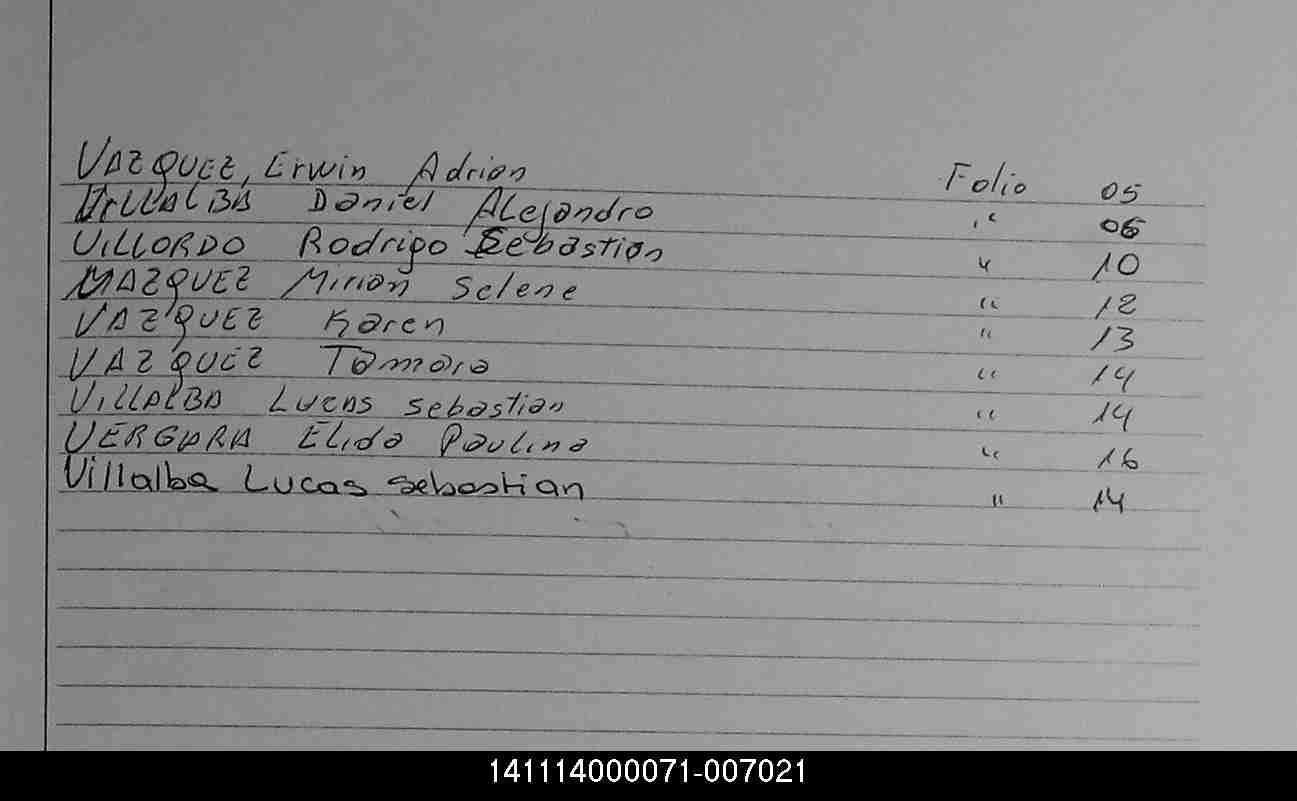 VAZQUEZ, Erwin Adrian Folio 05
VILLALBA Daniel Alejandro " 06
VILLORDO Rodrigo Sebastian " 10
MAZQUEZ Mirian Selene " 12
VAZQUEZ Karen " 13
VAZQUEZ Tamara " 14
VILLALBA LUCAS Sebastian " 14
VERGARA Elida Paulina " 16
Villalba Lucas Sebastian " 14
141114000071-007021